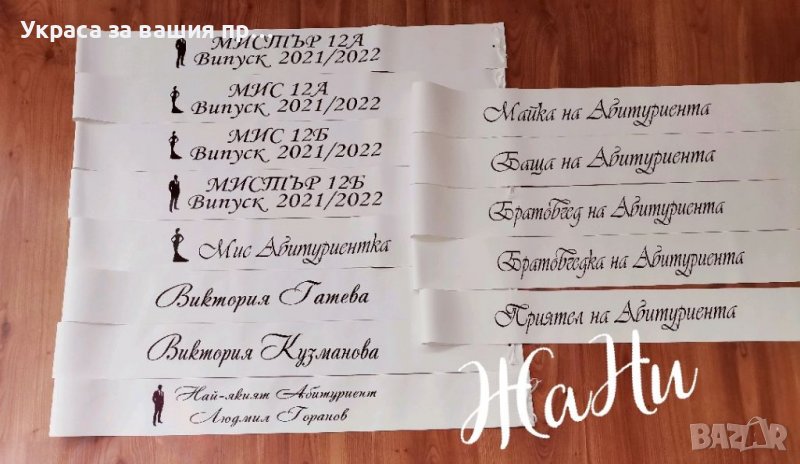 Украса за вашия пр...
МИСТЪР 12А
Випуск 2021/2022
МИС 12А
Випуск 2021/2022
МИС 12Б
Випуск 2021/2022
МИСТЪР 12Б
Випуск 2021/2022
Мис Абитуриентка
Виктория Гатева
Виктория Кузманова
Най-якият Абитуриент
Людмил Горанов
Майка на Абитуриента
Баща на Абитуриента
Братовчед на Абитуриента
Братовчедка на Абитуриента
Приятел на Абитуриента
ЖаНи
BAZAR